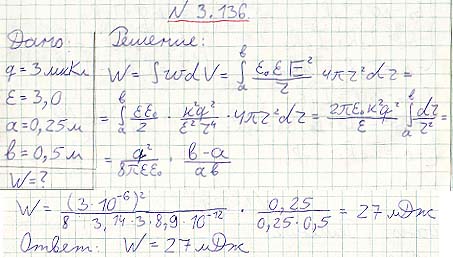 N 3.136.
Дано:
q = 3 мкКл
ε = 3,0
a = 0,25 м
b = 0,5 м
W = ?
Решение:
W = ∫ w dV = ∫ₐᵇ (ε₀ε E²)/2 4πr² dr =
= ∫ₐᵇ (εε₀)/2 · (k²q²)/(ε²r⁴) · 4πr² dr = (2πε₀k²q²)/ε ∫ₐᵇ dr/r² =
= q²/(8πεε₀) · (b-a)/(ab)
W = (3·10⁻⁶)²/(8·3,14·3·8,9·10⁻¹²) · 0,25/(0,25·0,5) = 27 мДж
Ответ: W = 27 мДж